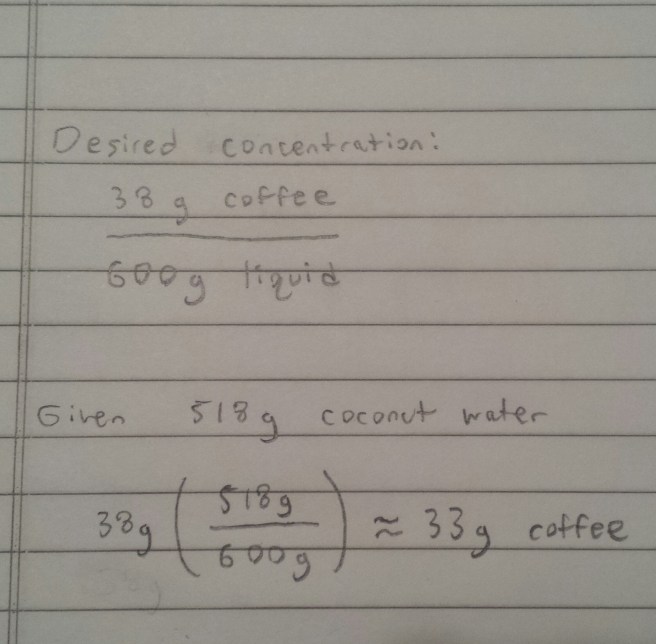 Desired concentration:
38 g coffee
600g liquid
Given 518g coconut water
38g (518g/600g) ≈ 33g coffee